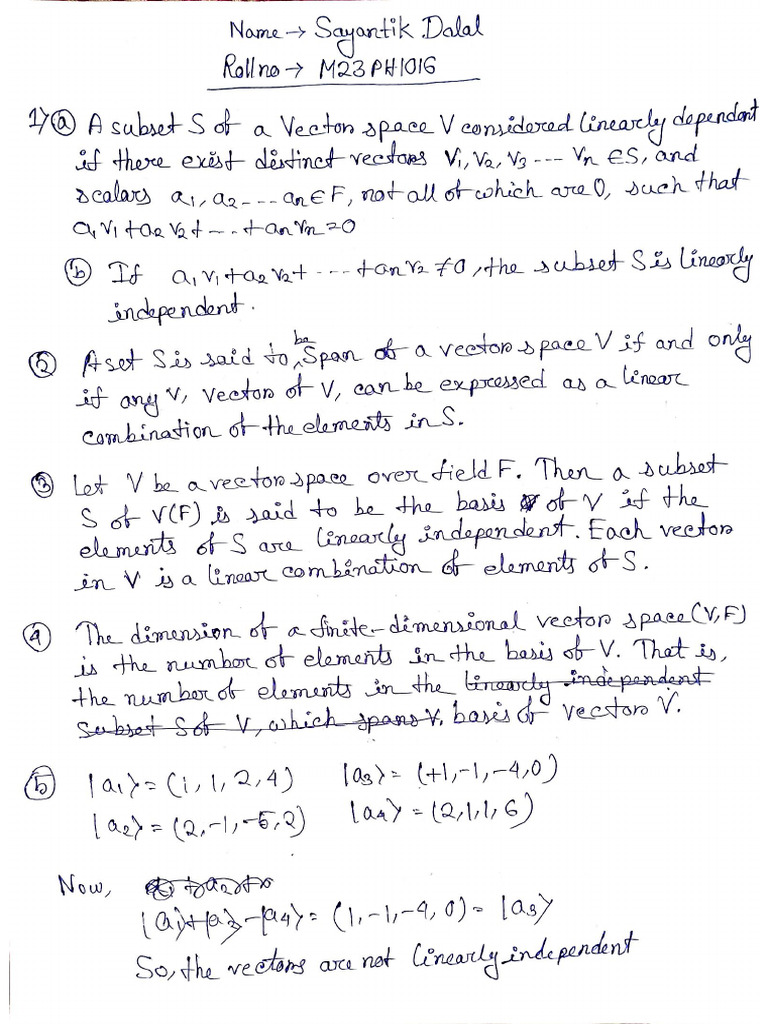 Name → Sayantik Dalal
Roll no → M23PH1016
1) (a) A subset S of a Vector space V considered linearly dependent
if there exist distinct vectors V1, V2, V3 --- Vn ∈ S, and
scalars a1, a2 --- an ∈ F, not all of which are 0, such that
a1v1+a2v2+ --- +anvn=0
(b) If a1v1+a2v2+ --- +anv2 ≠0, the subset S is linearly
independent.
(2) A set S is said to be Span of a vector space V if and only
if any v, vector of V, can be expressed as a linear
combination of the elements in S.
(3) Let V be a vector space over field F. Then a subset
S of V(F) is said to be the basis of V if the
elements of S are linearly independent. Each vector
in V is a linear combination of elements of S.
(4) The dimension of a finite-dimensional vector space (V,F)
is the number of elements in the basis of V. That is,
the number of elements in the linearly independent
subset S of V, which spans V. basis of vector V.
(5) |a1⟩ = (1, 1, 2, 4) |a3⟩ = (+1,-1,-4,0)
|a2⟩ = (2,-1,-5,2) |a4⟩ = (2,1,1,6)
Now,
|a1⟩+|a2⟩-|a4⟩ = (1,-1,-4,0) = |a3⟩
So, the vectors are not linearly independent